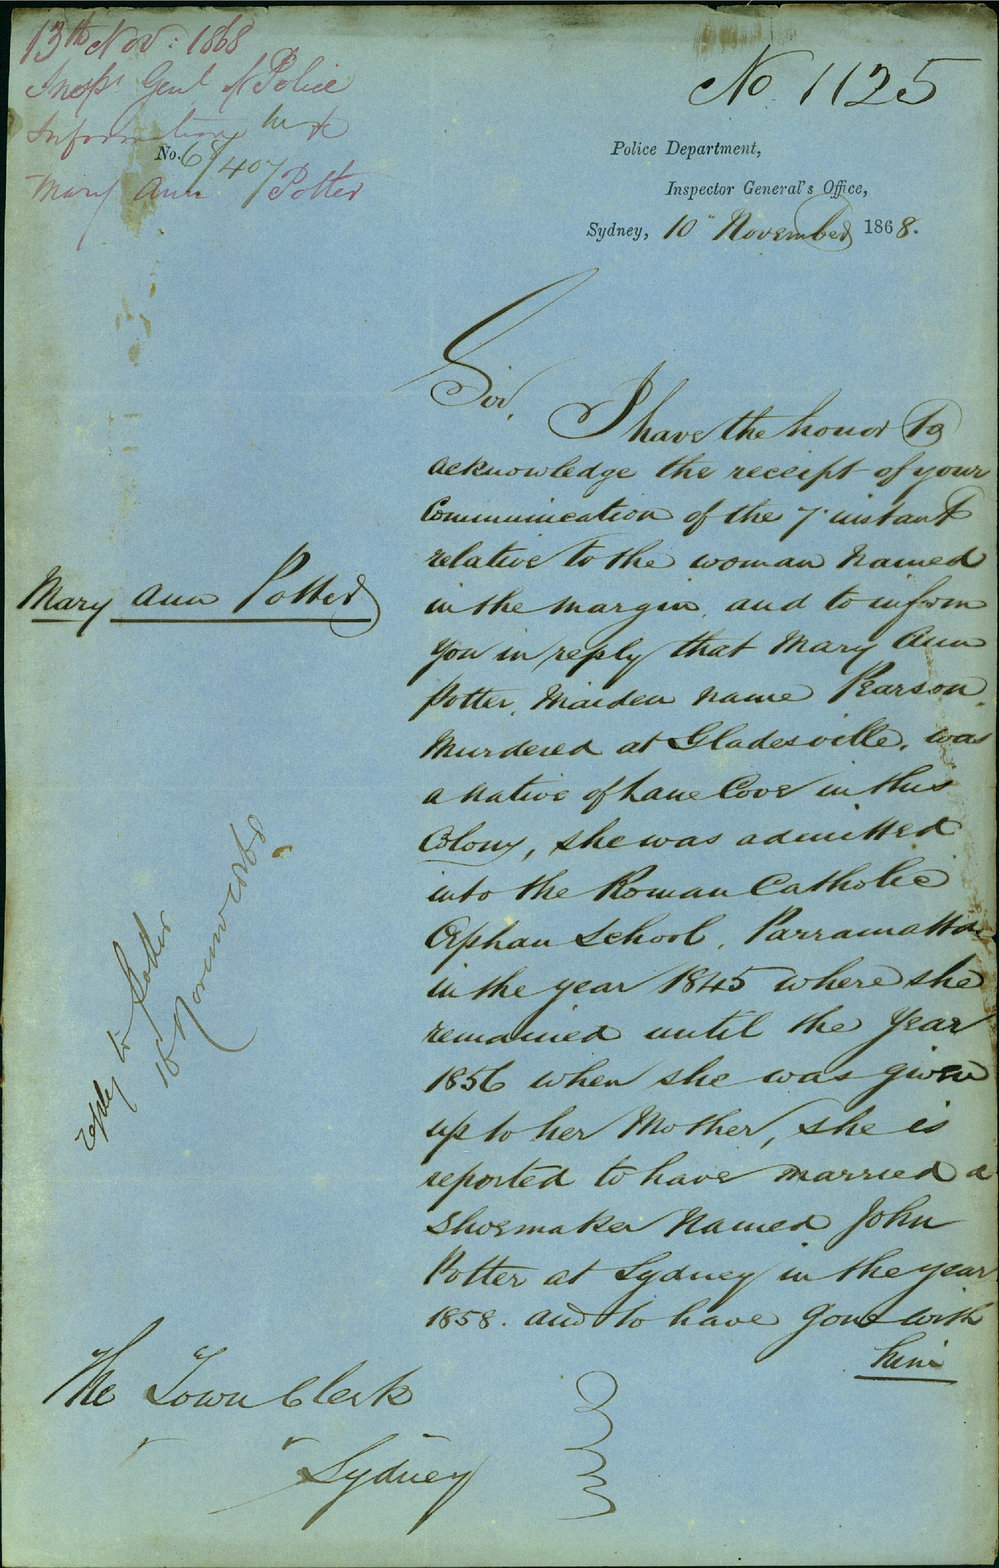 13th Nov: 1868
Inspr Genl of Police
Information
Mary Ann Potter
No. 68/407
No 1125
Police Department,
Inspector General's Office,
Sydney, 10" November 1868.
Sir,
I have the honor to
acknowledge the receipt of your
Communication of the 7" instant
relative to the woman named
in the margin, and to inform
you in reply that Mary Ann
Potter, Maiden name Pearson,
Murdered at Gladesville, was
a native of Lane Cove in this
Colony, she was admitted
into the Roman Catholic
Orphan School, Parramatta
in the year 1845 where she
remained until the Year
1856 when she was given
up to her Mother, she is
reported to have married a
Shoemaker Named John
Potter at Sydney in the year
1858. and to have gone with
him
Mary Ann Potter
reply to father
16 November 68
The Town Clerk
Sydney